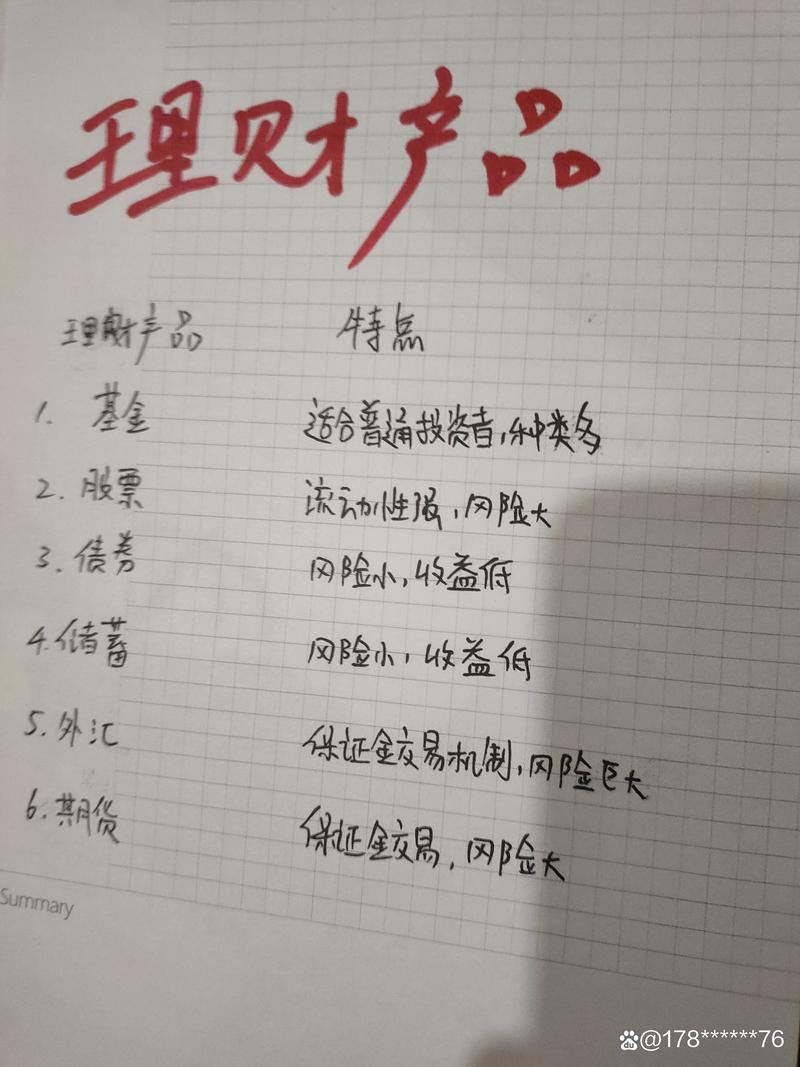 理财产品
理财产品 特点
1. 基金 适合普通投资者,种类多
2. 股票 流动性强,风险大
3. 债券 风险小,收益低
4. 储蓄 风险小,收益低
5. 外汇 保证金交易机制,风险巨大
6. 期货 保证金交易,风险大
Summary
du @178******76